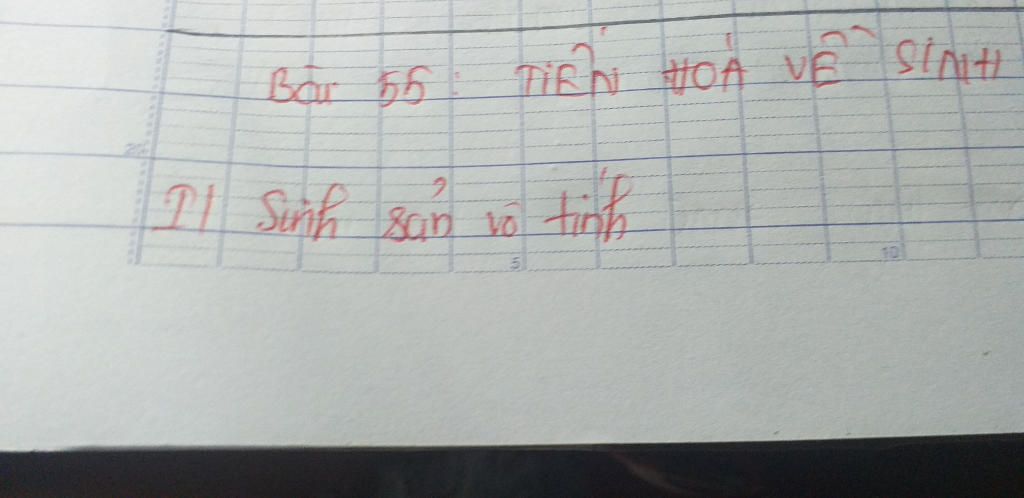 Bài 55: TIẾN HOÁ VỀ SINH
I/ Sinh sản vô tính
5 10